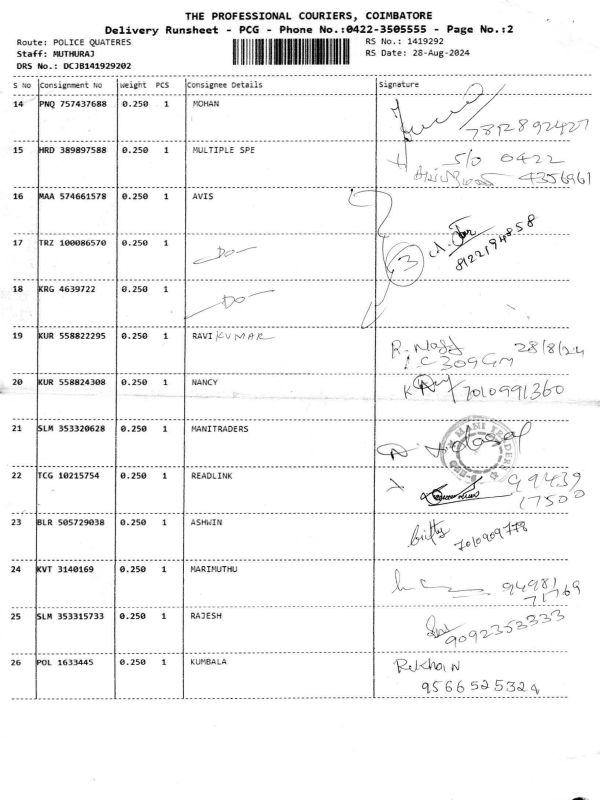 THE PROFESSIONAL COURIERS, COIMBATORE
Delivery Runsheet - PCG - Phone No.:0422-3505555 - Page No.:2
Route: POLICE QUATERES RS No.: 1419292
Staff: MUTHURAJ RS Date: 28-Aug-2024
DRS No.: DCJB141929202
S No Consignment No Weight PCS Consignee Details Signature
14 PNQ 757437688 0.250 1 MOHAN
7812892427
15 HRD 389897588 0.250 1 MULTIPLE SPE S/O 0422
4356961
16 MAA 574661578 0.250 1 AVIS
8122194858
17 TRZ 100086570 0.250 1 -DO- 3
18 KRG 4639722 0.250 1 -DO-
19 KUR 558822295 0.250 1 RAVI KUMAR 28/8/24
20 KUR 558824308 0.250 1 NANCY 7010991360
21 SLM 353320628 0.250 1 MANITRADERS
MANI TRADERS
22 TCG 10215754 0.250 1 READLINK 99439
17500
23 BLR 505729038 0.250 1 ASHWIN
7010909778
24 KVT 3140169 0.250 1 MARIMUTHU 94981
71769
25 SLM 353315733 0.250 1 RAJESH
9092353333
26 POL 1633445 0.250 1 KUMBALA Rekha N
9566525324